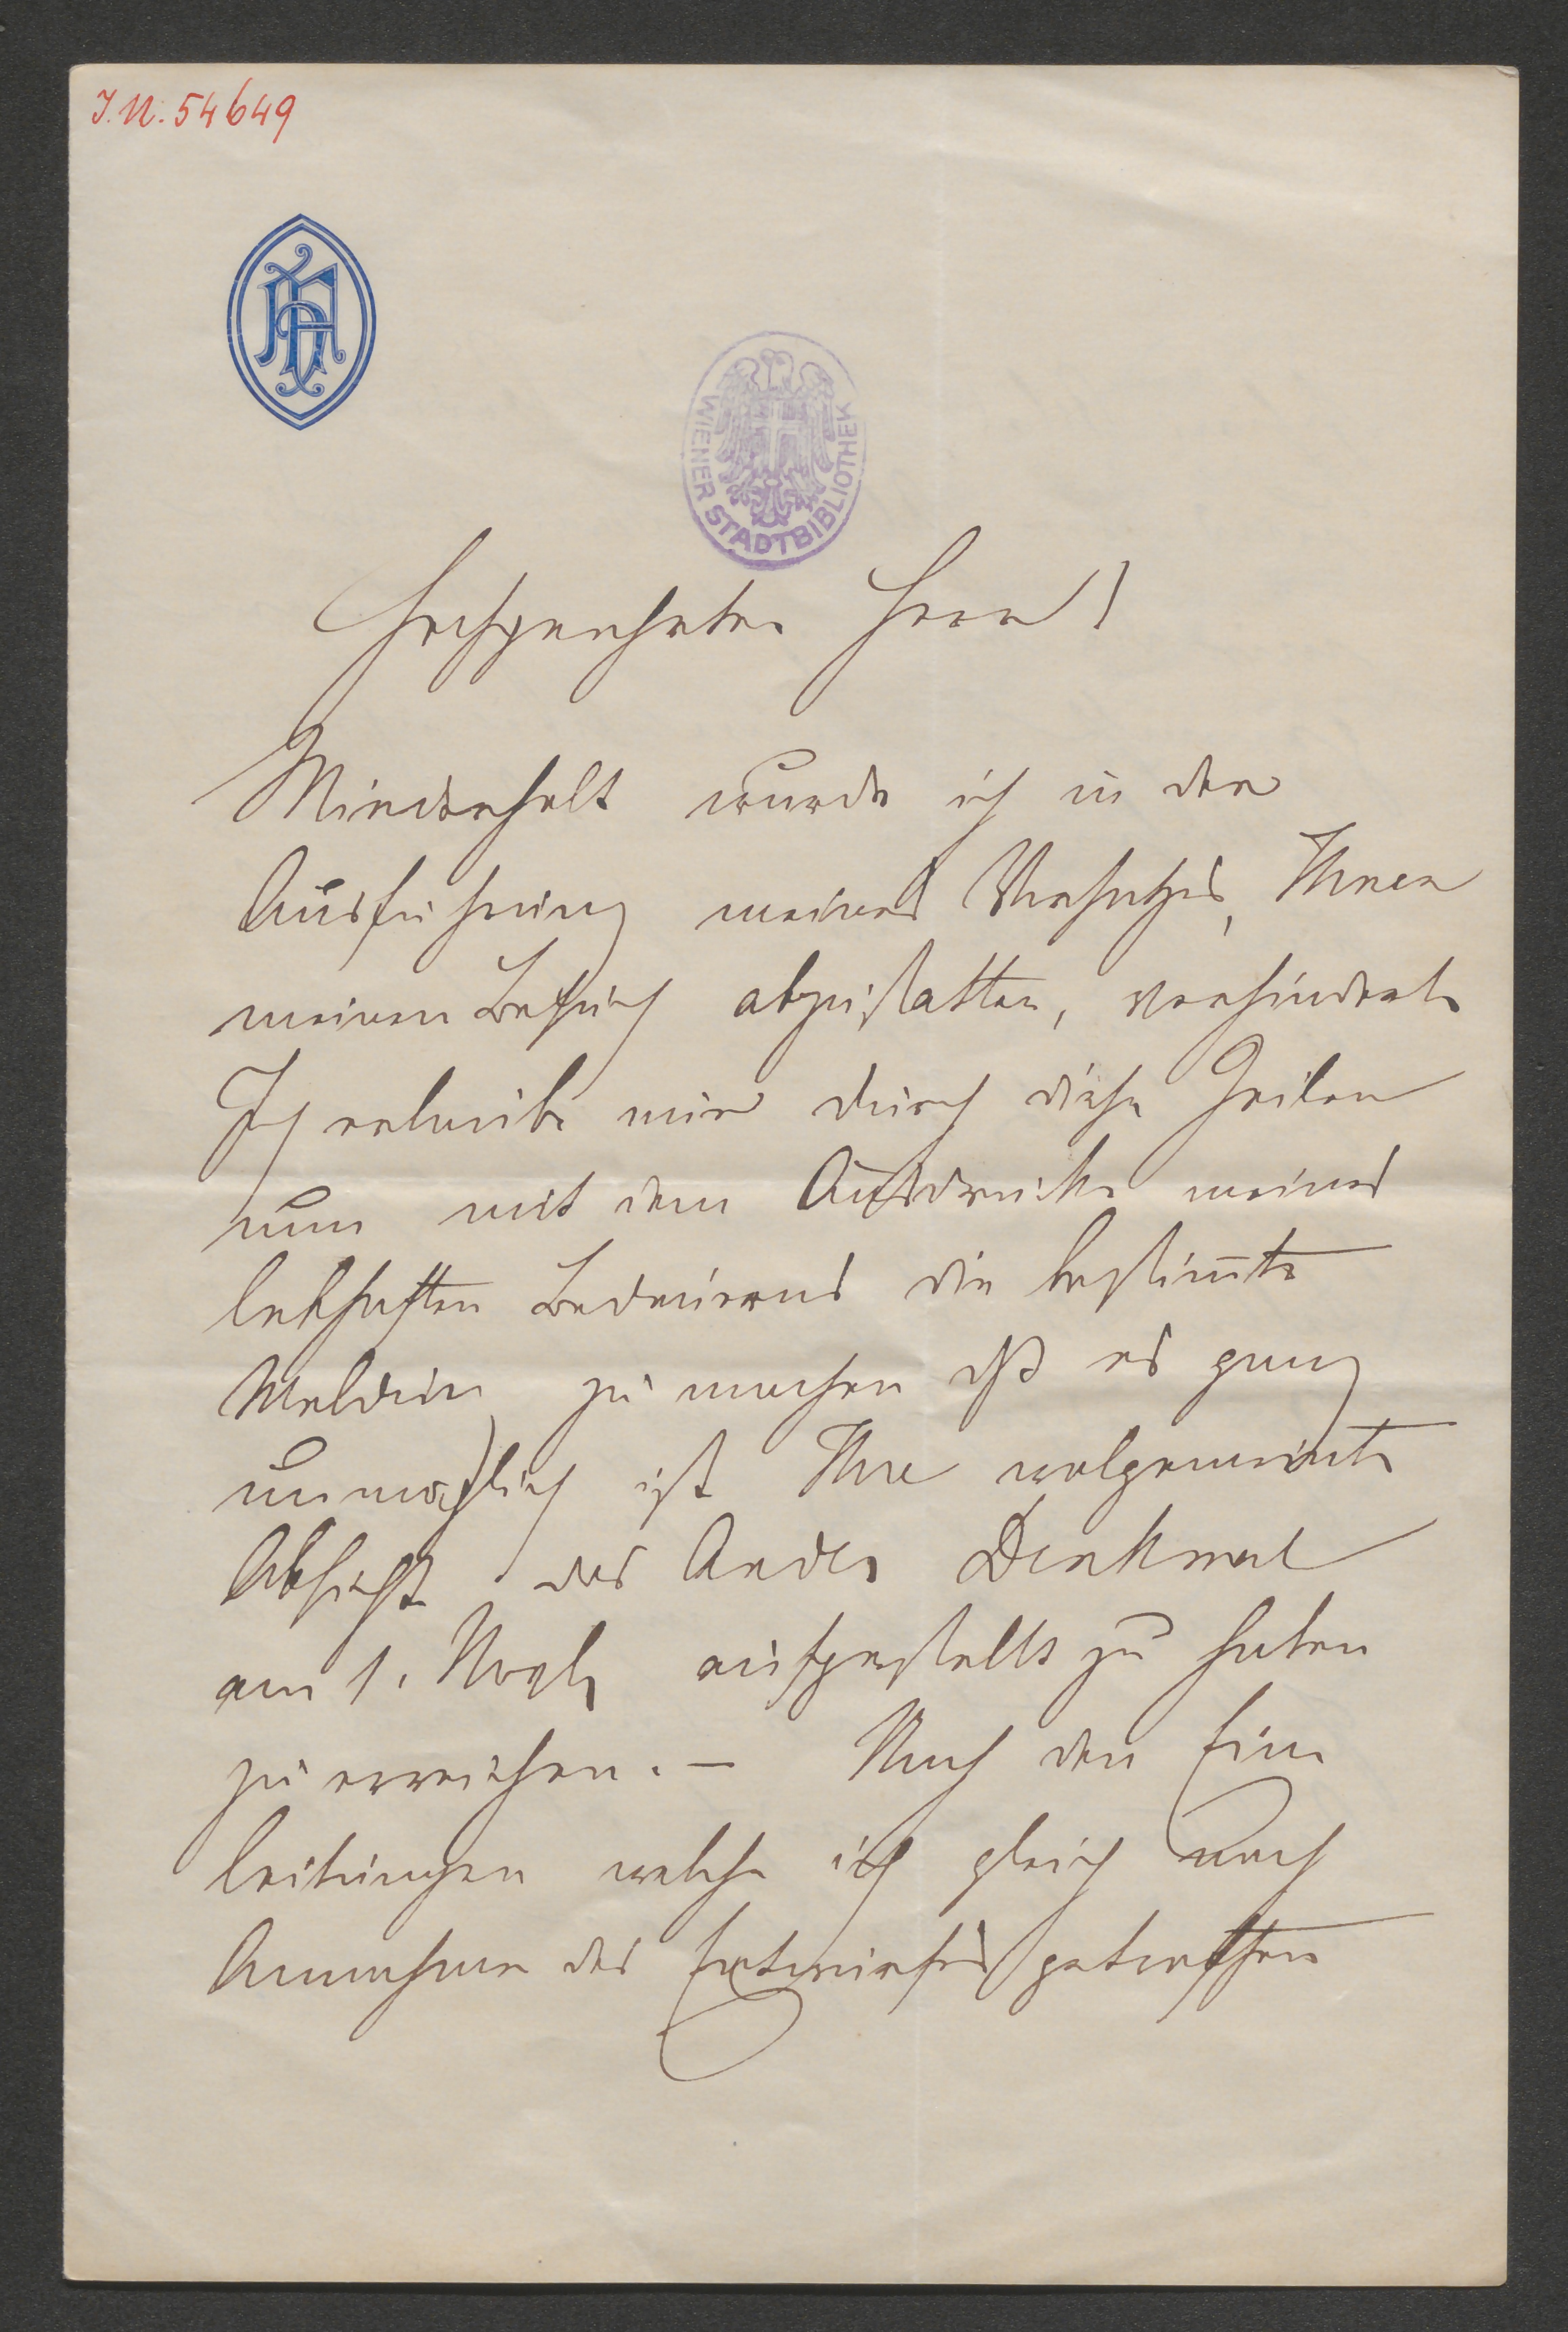 I.N. 54649
WIENER STADTBIBLIOTHEK
Hochgeehrter Herr!
Wiederholt wurde ich in der
Ausführung meines Vorsatzes, Ihnen
meinen Besuch abzustatten, verhindert.
Ich erlaube mir durch diese Zeilen
nun mit dem Ausdrucke meines
lebhaften Bedauerns die bestim̅te
Meldung zu machen dß es ganz
unmöglich ist Ihre wolgemeinte
Absicht das Denkmal
am 1. aufgestellt zu haben
zu erreichen. – Nach den Ein
leitungen welche ich gleich nach
Annahme des Entwurfes getroffen